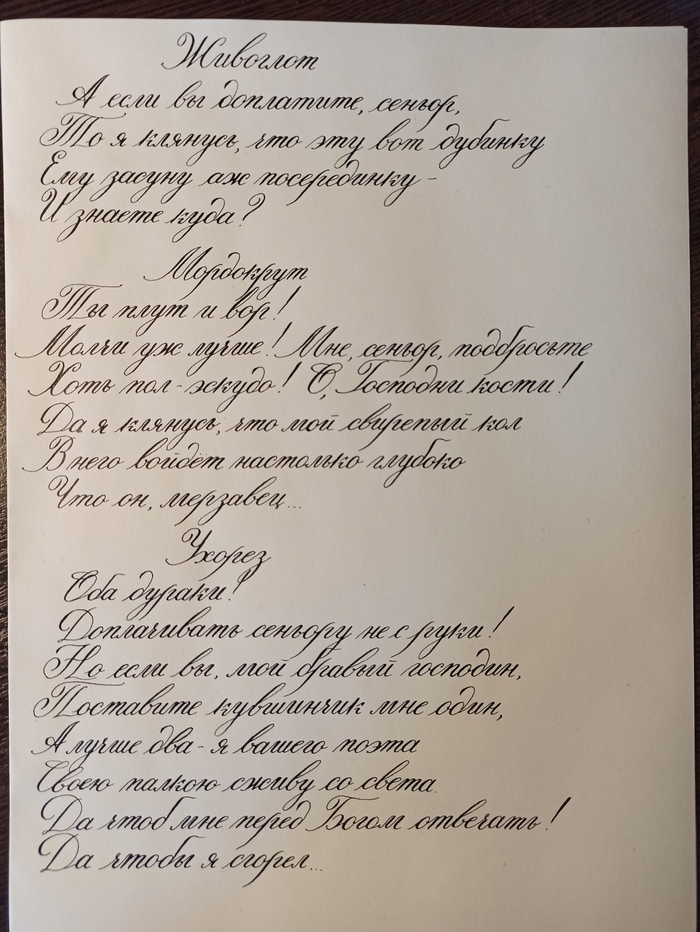 Живоглот
А если вы доплатите, сеньор,
То я клянусь, что эту вот дубинку
Ему засуну аж посерединку -
И знаете куда?
Мордокрут
Ты плут и вор!
Молчи уж лучше! Мне, сеньор, подбросьте
Хоть пол-эскудо! О, Господни кости!
Да я клянусь, что мой свирепый кол
В него войдёт настолько глубоко
Что он, мерзавец...
Ухорез
Оба дураки!
Доплачивать сеньору не с руки!
Но если вы, мой бравый господин,
Поставите кувшинчик мне один,
А лучше два - я вашего поэта
Своею палкою сживу со света.
Да чтоб мне перед Богом отвечать!
Да чтобы я сгорел...